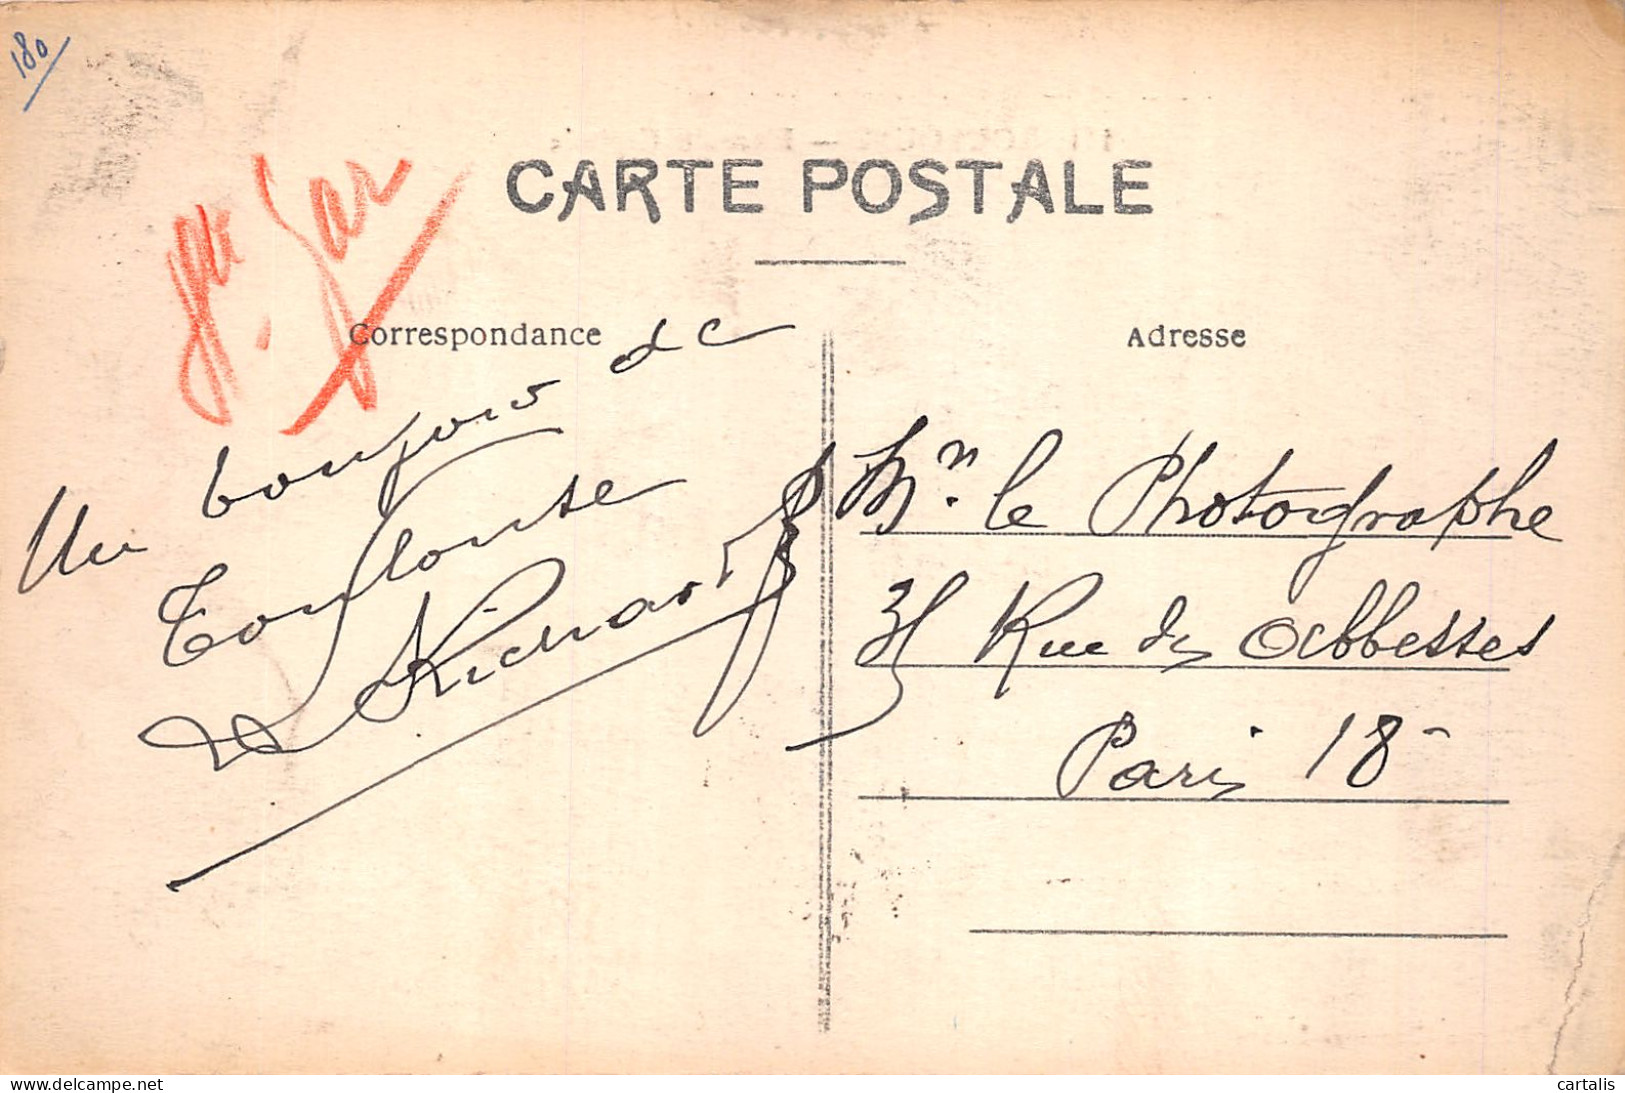 180
CARTE POSTALE
Correspondance
Adresse
Un bonjour de
Toulouse
Richard
Mr. le Photographe
31 Rue des Abbesses
Paris 18
cartalis